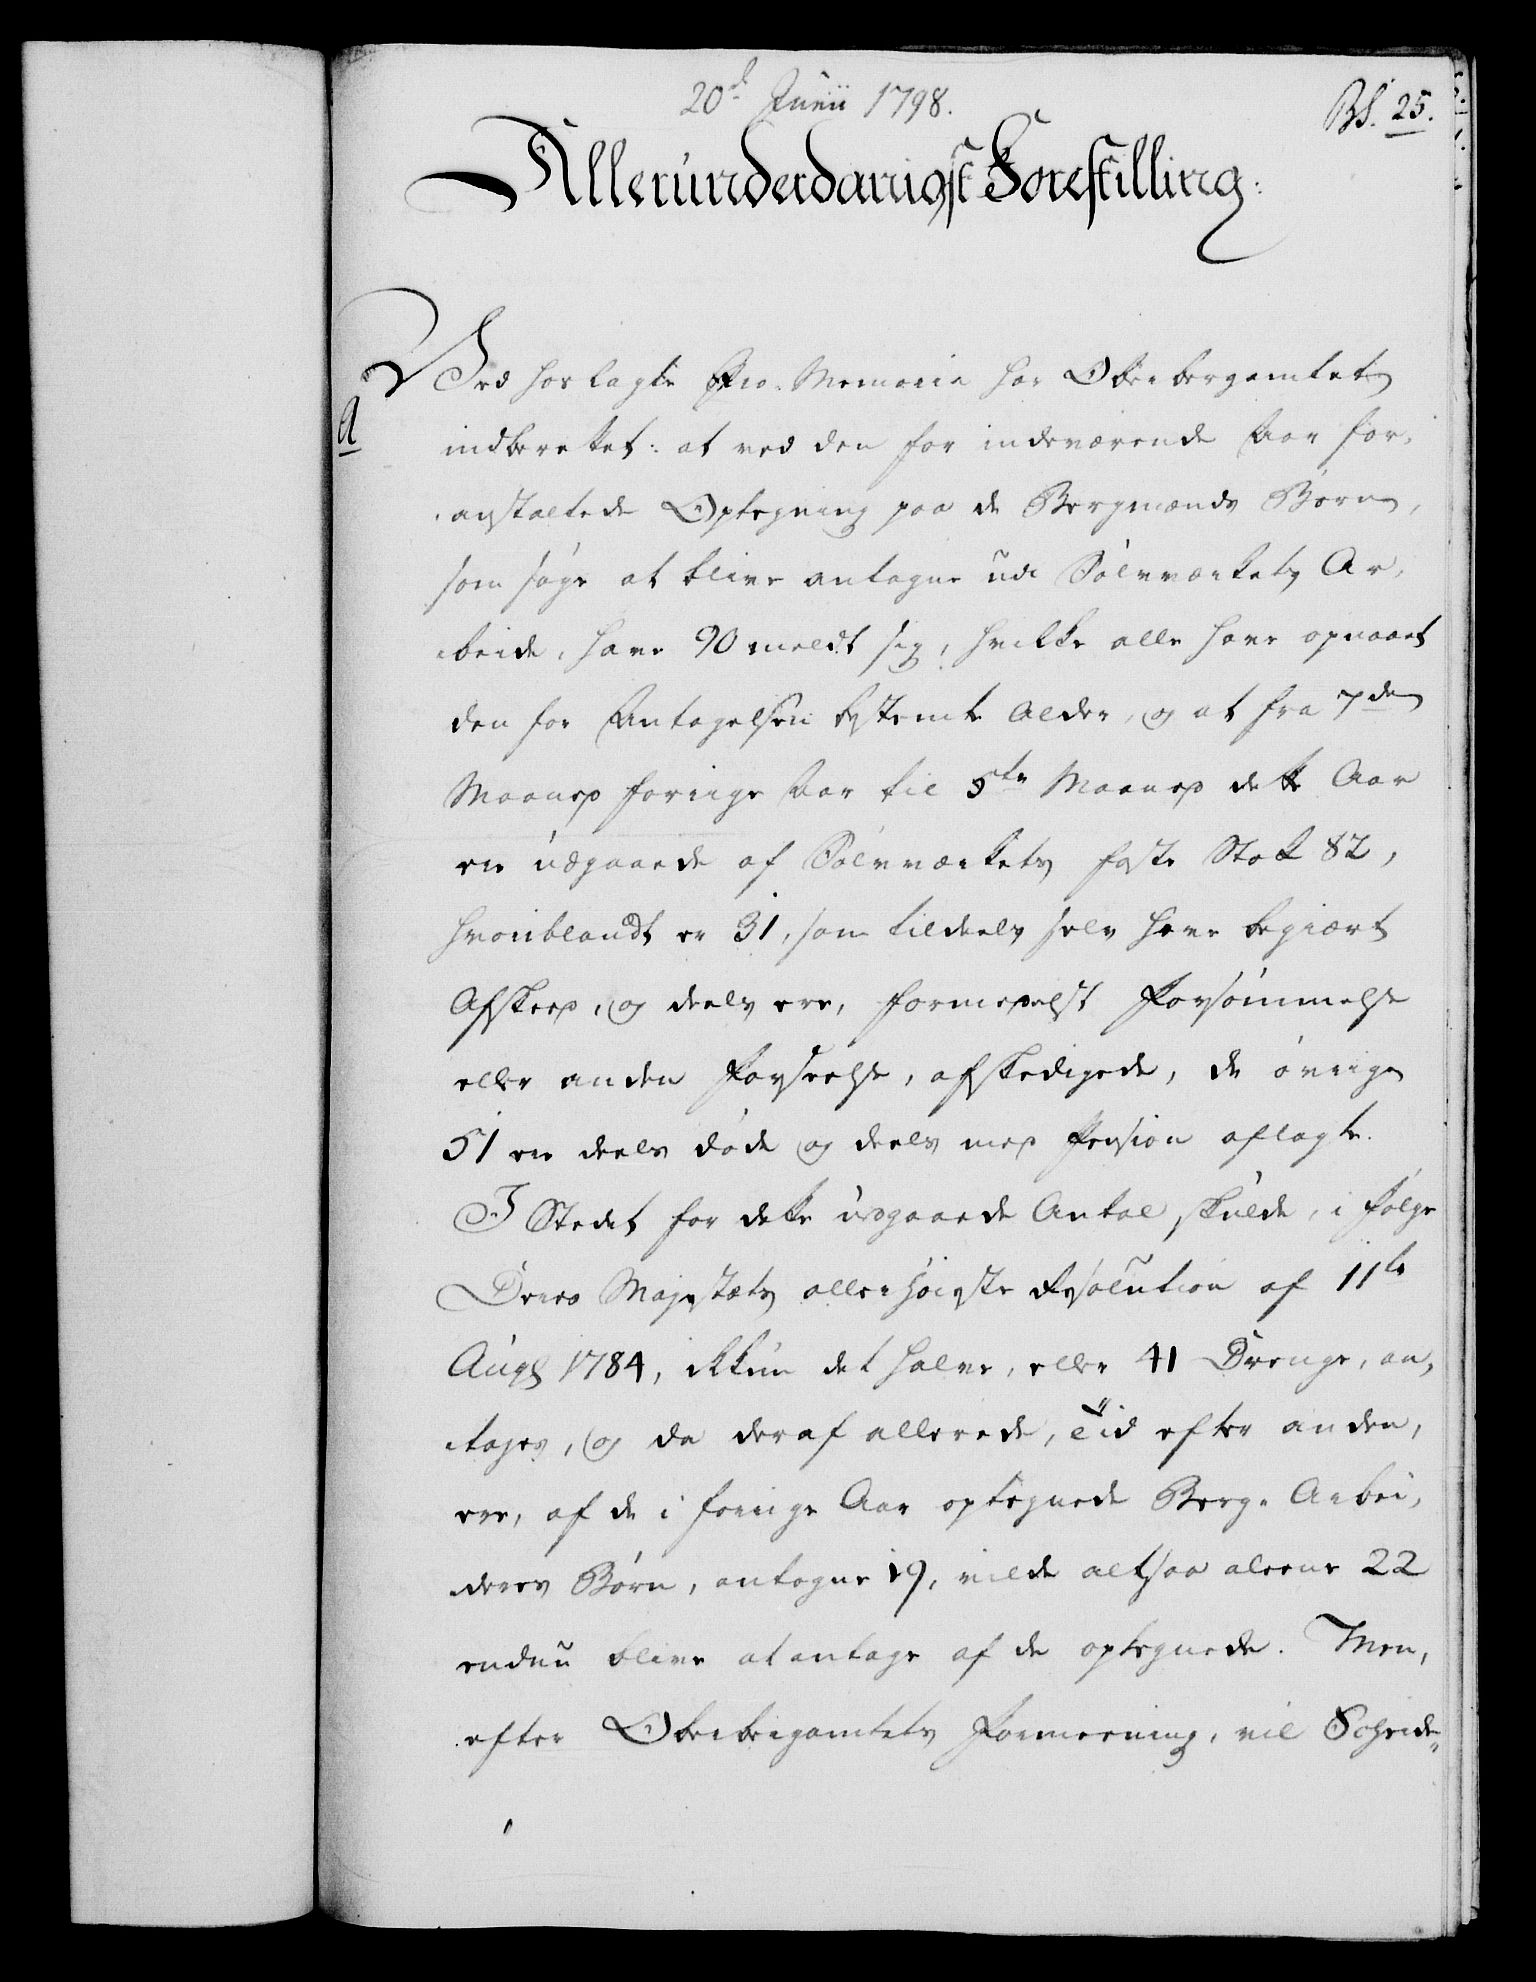 20d Junii 1798.
Bf. 25.
Allerunderdanigst Forestilling:
Ved hoslagte Pro. Memoria har Oberbergamtet
a
indberettet: at ved den for indeværende Aar for,
anstaltede Optegning paa de Bergmænds Børn,
som søge at blive antagne udi Sølvværkets Ar,
beide, have 90 meldt sig, hvilke alle have opnaaet
den for Antagelsen bestemte Alder, og at fra 7de
Maaned forrige Aar til 5te Maaned dette Aar
ere udgaaede af Sølvværkets faste Stok 82,
hvoriblandt er 31, som tildeels selv have begiært
Afskeed, og deels ere, formedelst Forsømmelse
eller anden Forseelse, afskedigede, de øvrige
51 ere deels døde og deels med Pension aflagte.
I Stedet for dette udgaaede Antal skulde, i Følge
Deres Majestæts allerhøieste Resolution af 11te
Augs 1784, ikkun det halve, eller 41 Drenge, an,
tages, og da deraf allerede, Tid efter anden,
ere, af de i forrige Aar optegnede Berg-Arbei,
deres Børn, antagne 19, vilde altsaa alene 22
endnu blive at antage af de optegnede. Men,
efter Oberbergamtets Formeening, vil Scheide,